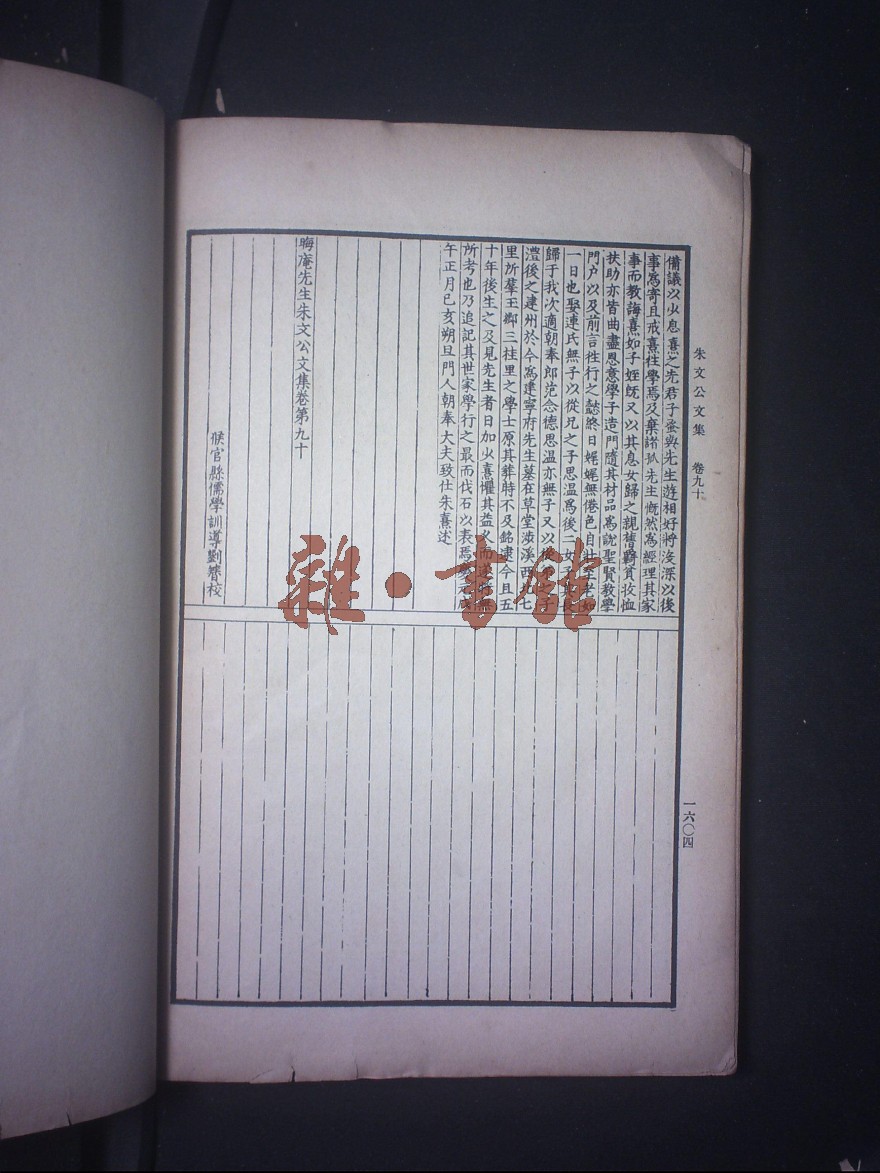 朱文公文集 卷九十
備議以少息熹之先君子蚤與先生遊相好將没深以後
事爲寄且戒熹往學焉及棄諸孤先生慨然爲經理其家
事而教誨熹如子姪既又以其息女歸之親舊羇貧收恤
扶助亦皆曲盡恩意學子造門隨其材品爲説聖賢教學
門户以及前言徃行之懿終日娓娓無倦色自壯至老如
一日也娶連氏無子以從兄之子思温爲後二女子其長
歸于我次適朝奉郎范念德思温亦無子又以從
澧後之建州於今爲建寧府先生墓在草堂涉溪西七
里所羣玉鄉三桂里之學士原其葬時不及銘逮今且五
十年後生之及見先生者日加少熹懼其益久而
所考也乃追記其世家學行之最而伐石以表焉慶元戊
午正月已亥朔旦門人朝奉大夫致仕朱熹述
晦庵先生朱文公文集卷第九十
候官縣儒學訓導劉簪校
一六〇四
雜·書館